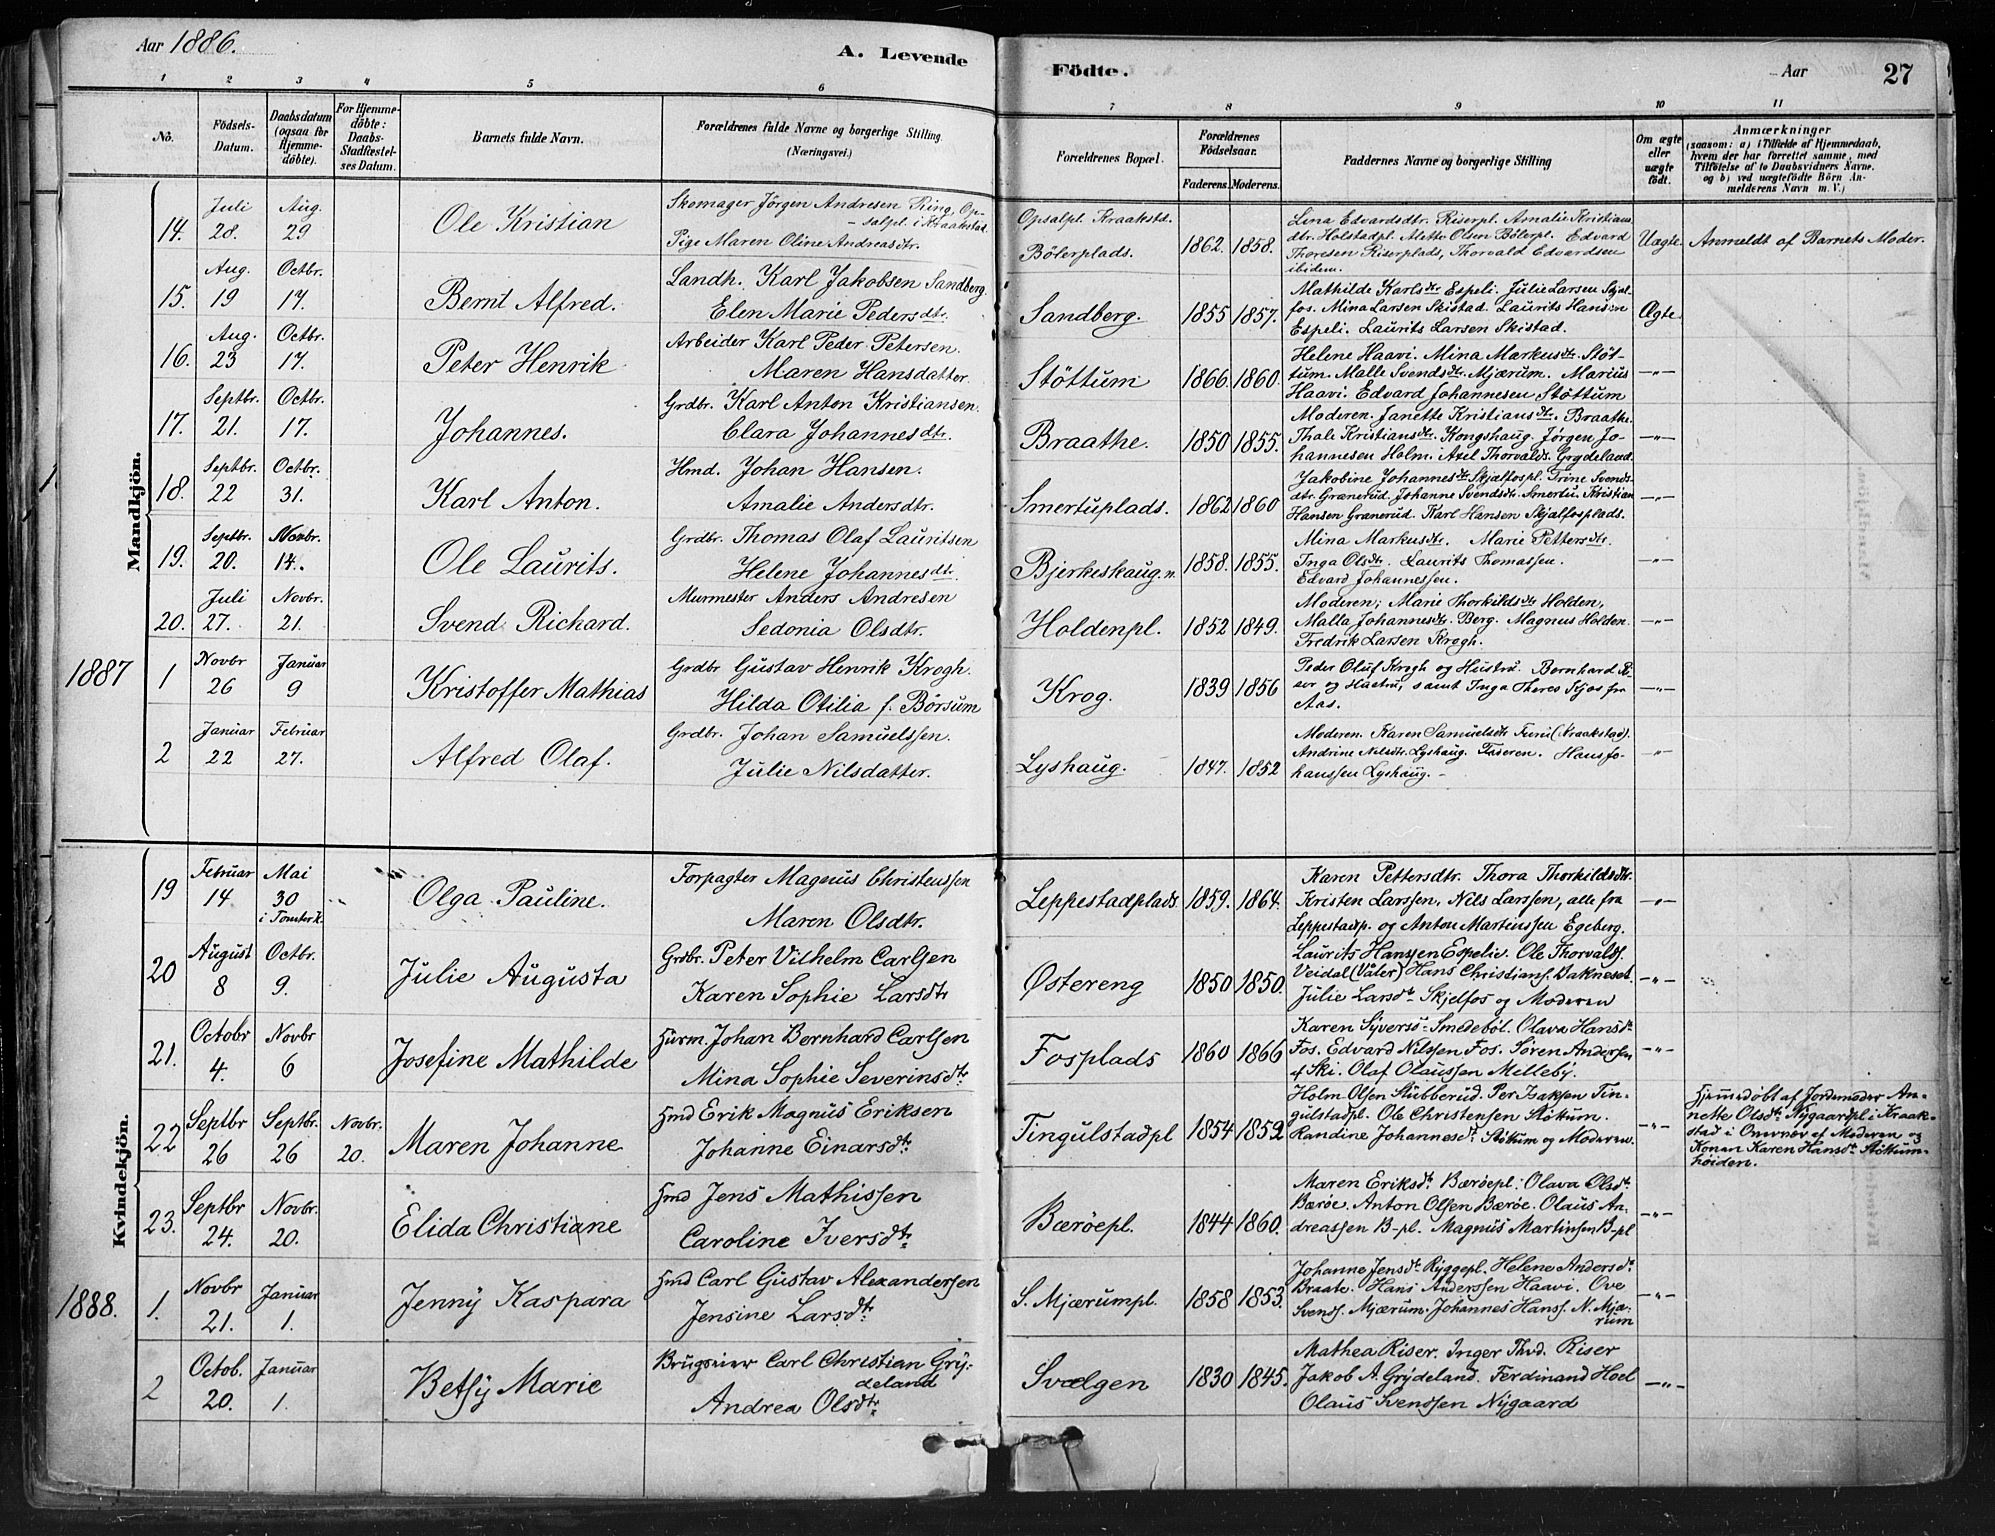 Aar 1886.
A. Levende
Födte.
Aar
27
1
2
3
4
5
6
7
8
9
10
11
No.
Födsels-Datum.
Daabsdatum (ogsaa for Hjemme-döbte).
For Hjemme-döbte: Daabs-Stadfæstel-ses Datum.
Barnets fulde Navn.
Forældrenes fulde Navne og borgerlige Stilling.
(Næringsvei.)
Forældrenes Bopæl.
Forældrenes Födselsaar.
Faderens. Moderens.
Faddernes Navne og borgerlige Stilling
Om ægte eller uægte födt.
Anmærkninger
(saasom: a) i Tilfælde af Hjemmedaab, hvem der har forrettet samme, med Tilföielse af to Daabsvidners Navne. og b) ved uægtefödte Börn An-melderens Navn m. V.)
Mandkjön.
14.
Juli 28.
Aug. 29
Ole Kristian
Skomager Jörgen Andresen Ring, Op-
salpl. i Kraakstad.
Pige Maren Oline Andreasdtr.
Opsalpl. Kraakstd.
Bölerplads.
1862. 1858.
Lina Edvardsdtr. Riserpl. Amalie Kristians
dtr. Holstadpl. Mette Olsen Bölerpl. Edvard
Thoresen Riserplads, Thorvald Edvardsen
ibidem.
Uægte.
Anmeldt af Barnets Moder.
15.
Aug. 19
Octbr. 17
Bernt Alfred.
Landh. Karl Jakobsen Sandberg.
Elen Marie Pedersdtr.
Sandberg.
1855 1857.
Mathilde Karlsdtr. Espeli. Julie Larsen Skjel-
fos. Mina Larsen Skistad. Laurits Hansen
Espeli. Laurits Larsen Skistad.
Ægte.
16.
Aug. 23
Octbr. 17.
Peter Henrik
Arbeider Karl Peder Petersen.
Maren Hansdatter.
Stöttum
1866. 1860.
Helene Haavi. Mina Markusdtr. Stöt-
tum. Malle Svendsdtr. Mjærum. Marius
Haavi. Edvard Johannesen Stöttum
—"—
17.
Septbr. 21.
Octbr. 17.
Johannes.
Grdbr. Karl Anton Kristiansen.
Clara Johannesdtr.
Braathe.
1850 1855.
Moderen. Janette Kristiansdtr. Braathe.
Thale Kristiansdtr. Kongshaug. Jörgen Jo-
hannesen Holm. Axel Thorvalds. Grydeland.
—"—
18.
Septbr. 22
Octbr. 31.
Karl Anton.
Hmd. Johan Hansen.
Amalie Andersdtr.
Smertuplads.
1862 1860
Jakobine Johannesdtr. Skjalfospl. Trine Svends
dtr. Granerud. Johanne Svendsdtr. Smertu. Kristian
Hansen Granerud. Karl Hansen Skjalfosplads.
—"—
19.
Septbr. 20.
Novbr. 14.
Ole Laurits.
Grdbr. Thomas Olaf Lauritsen
Helene Johannesdtr.
Bjerkeskaug.n.
1858. 1855.
Mina Markusdtr. Marie Pettersdtr.
Inga Olsdtr. Laurits Thomassen.
Edvard Johannessen.
—"—
20.
Juli 27.
Novbr. 21.
Svend Richard.
Murmester Anders Andresen
Sedonia Olsdtr.
Holdenpl.
1852 1849.
Moderen; Marie Thorkildsdtr. Holden,
Malla Johannesdtr. Berg. Magnus Holden.
Fredrik Larsen Krogh.
—"—
1887
1
Novbr 26
Januar 9
Kristoffer Mathias
Grdbr Gustav Henrik Krogh.
Hilda Otilia f. Börsum
Krog.
1839 1856
Peder Oluf Krogh og Hustru. Bernhard
og Hustru, samt Inga Theres Skjos fra
Aas.
—"—
2
Januar 22
Februar 27.
Alfred Olaf.
Grdbr. Johan Samuelssen.
Julie Nilsdatter.
Lyshaug.
1847. 1852
Moderen. Karen Samuelsdtr Furu (Kraakstad).
Andrine Nilsdtr. Lyshaug. Faderen. Hans Jo-
hanssen Lyshaug.
—"—
Kvindekjön.
19
Februar 14
Mai 30
i Tomter K.
Olga Pauline.
Forpagter Magnus Christenssen
Maren Olsdtr.
Leppestadplads.
1859. 1864.
Karen Pettersdtr. Thora Thorkildsdtr.
Kristen Larssen, Nils Larssen, alle fra
Leppestadp. og Anton Martinssen Egeberg.
—"—
20
August 8
Octbr. 9.
Julie Augusta
Grdbr. Peter Vilhelm Carlsen
Karen Sophie Larsdtr
Østereng
1850 1850.
Laurits Hanssen Espelie. Ole Thorvalds.
Veidal (Våler) Hans Christians. Dakneset.
Julie Larsdtr Skjelfos og Moderen
—"—
21.
Octobr 4.
Novbr 6
Josefine Mathilde
Husm. Johan Bernhard Carlsen
Mina Sophie Severinsdtr
Fosplads
1860 1866
Karen Syvers. Smedeböl. Olava Hansdtr
Fos. Edvard Nilssen Fos. Sören Andersen
af Ski. Olaf Olaussen Melleby.
—"—
22
Septbr 26
Septbr. 26
Novbr. 20.
Maren Johanne
Hmd Erik Magnus Eriksen
Johanne Einarsdtr.
Tingulstadpl
1854 1852
Holm Olsen Stubberud. Per Isaksen Tin-
gulstadpl. Ole Christensen Støtum.
Randine Johannesdtr Støtum og Moderen.
—"—
Hjemmedöbt af Jordemoder An-
nette Olsdtr Nygaardpl i Kraak-
stad i Overvær af Moderen og
Konen Karen Hansdtr Støttum-
høiden.
23.
Septbr 24.
Novbr. 20.
Elida Christiane
Hmd Jens Mathissen
Caroline Iversdtr
Bærøepl.
1844 1860.
Maren Eriksdtr Bærøepl. Olava Olsdtr
Bærøe. Anton Olsen Bærøe. Olaus An-
dreassen B-pl. Magnus Martinsen B-pl
—"—
1888.
1.
Novbr 21.
Januar 1.
Jenny Kaspara
Hmd Carl Gustav Alexandersen
Jensine Larsdtr
S. Mjærumpl.
1858 1853.
Johanne Jensdtr Ryggepl. Helene Andersdtr
Braate. Hans Anderssen Haavi. Ove
Svends. Mjærum. Johannes Hans. N. Mjæ-
rum
—"—
2
Octob. 20.
Januar 1.
Betsy Marie
Brugseier Carl Christian Gry-
deland
Andrea Olsdtr
Svælgen
1830 1845.
Mathea Riser. Inger Thvd. Riser
Jakob A. Grydeland. Ferdinand Hoel
Olaus Svenssen Nygaard
—"—